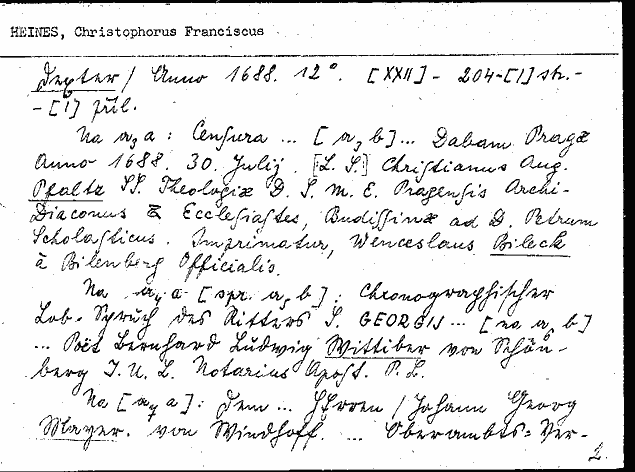 HEINES, Christophorus Franciscus
Dexter / Anno 1688. 12°. [XXII] - 204-[1] str. -
- [1] příl.
Na a3a : Censura ... [a3b] ... Dabam Pragæ
Anno 1688. 30. Julij. [L. S.] Christianus Aug.
Pfaltz SS. Theologiæ D. S. M. E. Pragensis Archi-
Diaconus & Ecclesiastes, Budissinæ ad D. Petrum
Scholasticus. Imprimatur, Wenceslaus Bileck
à Bilenberg Officialis.
Na a4a [spr. a3b] : Chronographischer
Lob-Spruch des Ritters S. GEORGIJ ... [na a b]
... Poët Bernhard Ludwig Wittiber von Schön-
berg J. U. L. Notarius Apost. P. L.
Na [a7a] : Dem ... Herren / Johann Georg
Mayer. von Windhoff. ... Oberambts=Ver-
2.